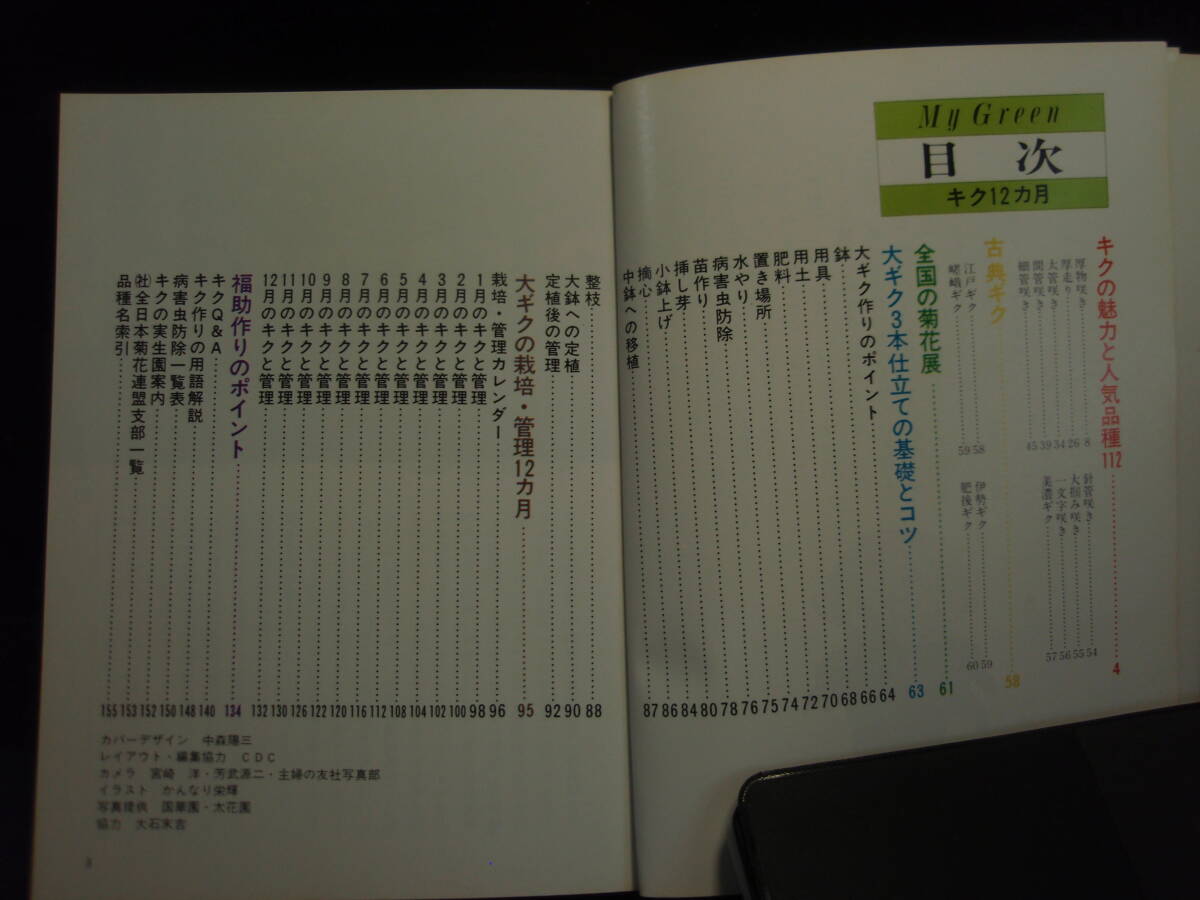 My Green
目次
キク12カ月
キクの魅力と人気品種112……4
厚物咲き……8
厚走り……26
太管咲き……34
間管咲き……39
細管咲き……45
針管咲き……54
大掴み咲き……55
一文字咲き……56
美濃ギク……57
古典ギク……58
江戸ギク……58
嵯峨ギク……59
伊勢ギク……59
肥後ギク……60
全国の菊花展……61
大ギク3本仕立ての基礎とコツ……63
大ギク作りのポイント……64
鉢……66
用具……68
用土……70
肥料……72
置き場所……74
水やり……75
病害虫防除……76
苗作り……78
挿し芽……80
小鉢上げ……84
摘心……86
中鉢への移植……87
整枝……88
大鉢への定植……90
定植後の管理……92
大ギクの栽培・管理12カ月……95
栽培・管理カレンダー……96
1月のキクと管理……98
2月のキクと管理……100
3月のキクと管理……102
4月のキクと管理……104
5月のキクと管理……108
6月のキクと管理……112
7月のキクと管理……116
8月のキクと管理……120
9月のキクと管理……122
10月のキクと管理……126
11月のキクと管理……130
12月のキクと管理……132
福助作りのポイント……134
キクQ&A……140
キク作りの用語解説……148
病害虫防除一覧表……150
キクの実生園案内……152
㈳全日本菊花連盟支部一覧……153
品種名索引……155
カバーデザイン 中森陽三
レイアウト・編集協力 CDC
カメラ 宮崎 洋・芳武源二・主婦の友社写真部
イラスト かんなり栄輝
写真提供 国華園・太花園
協力 大石末吉
3